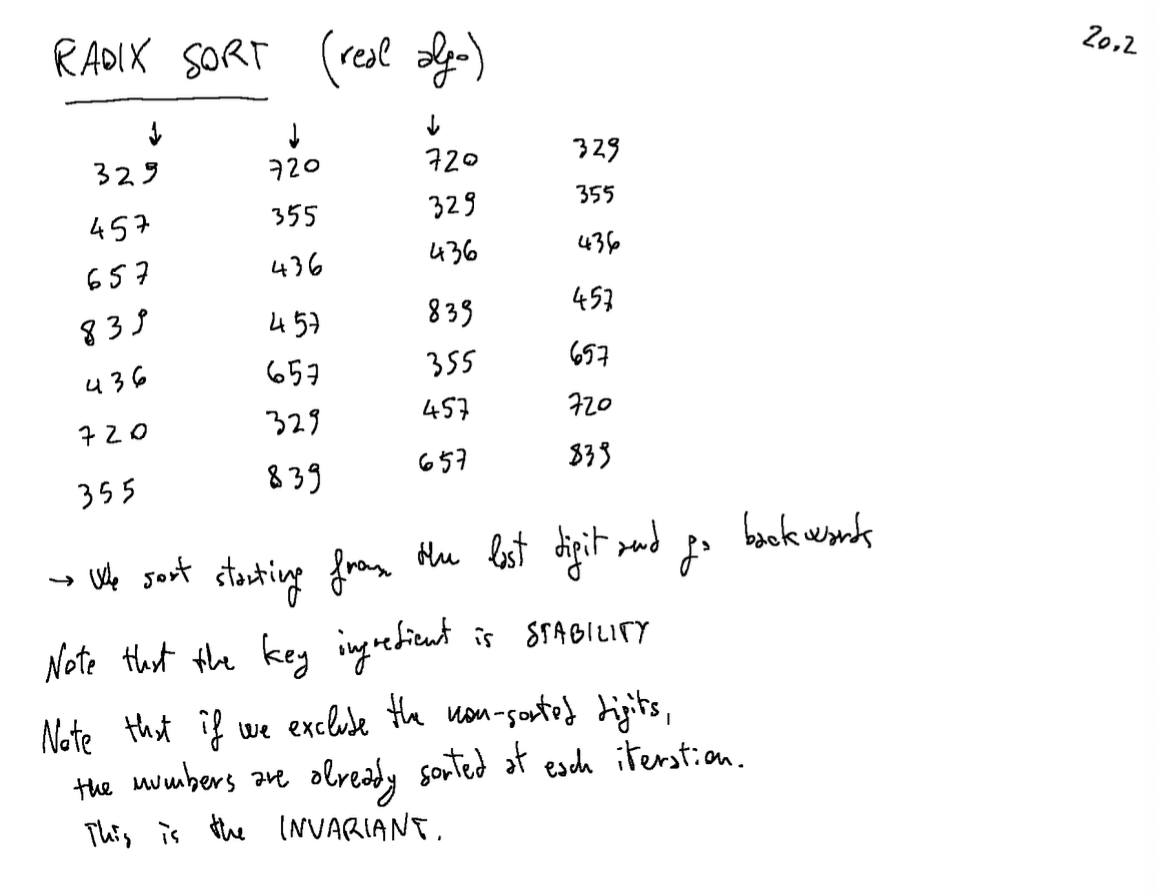 RADIX SORT (real algo) 20.2
↓ ↓ ↓
329 720 720 329
457 355 329 355
657 436 436 436
839 457 839 457
436 657 355 657
720 329 457 720
355 839 657 839
→ We sort starting from the last digit and go backwards
Note that the key ingredient is STABILITY
Note that if we exclude the non-sorted digits,
the numbers are already sorted at each iteration.
This is the INVARIANT.